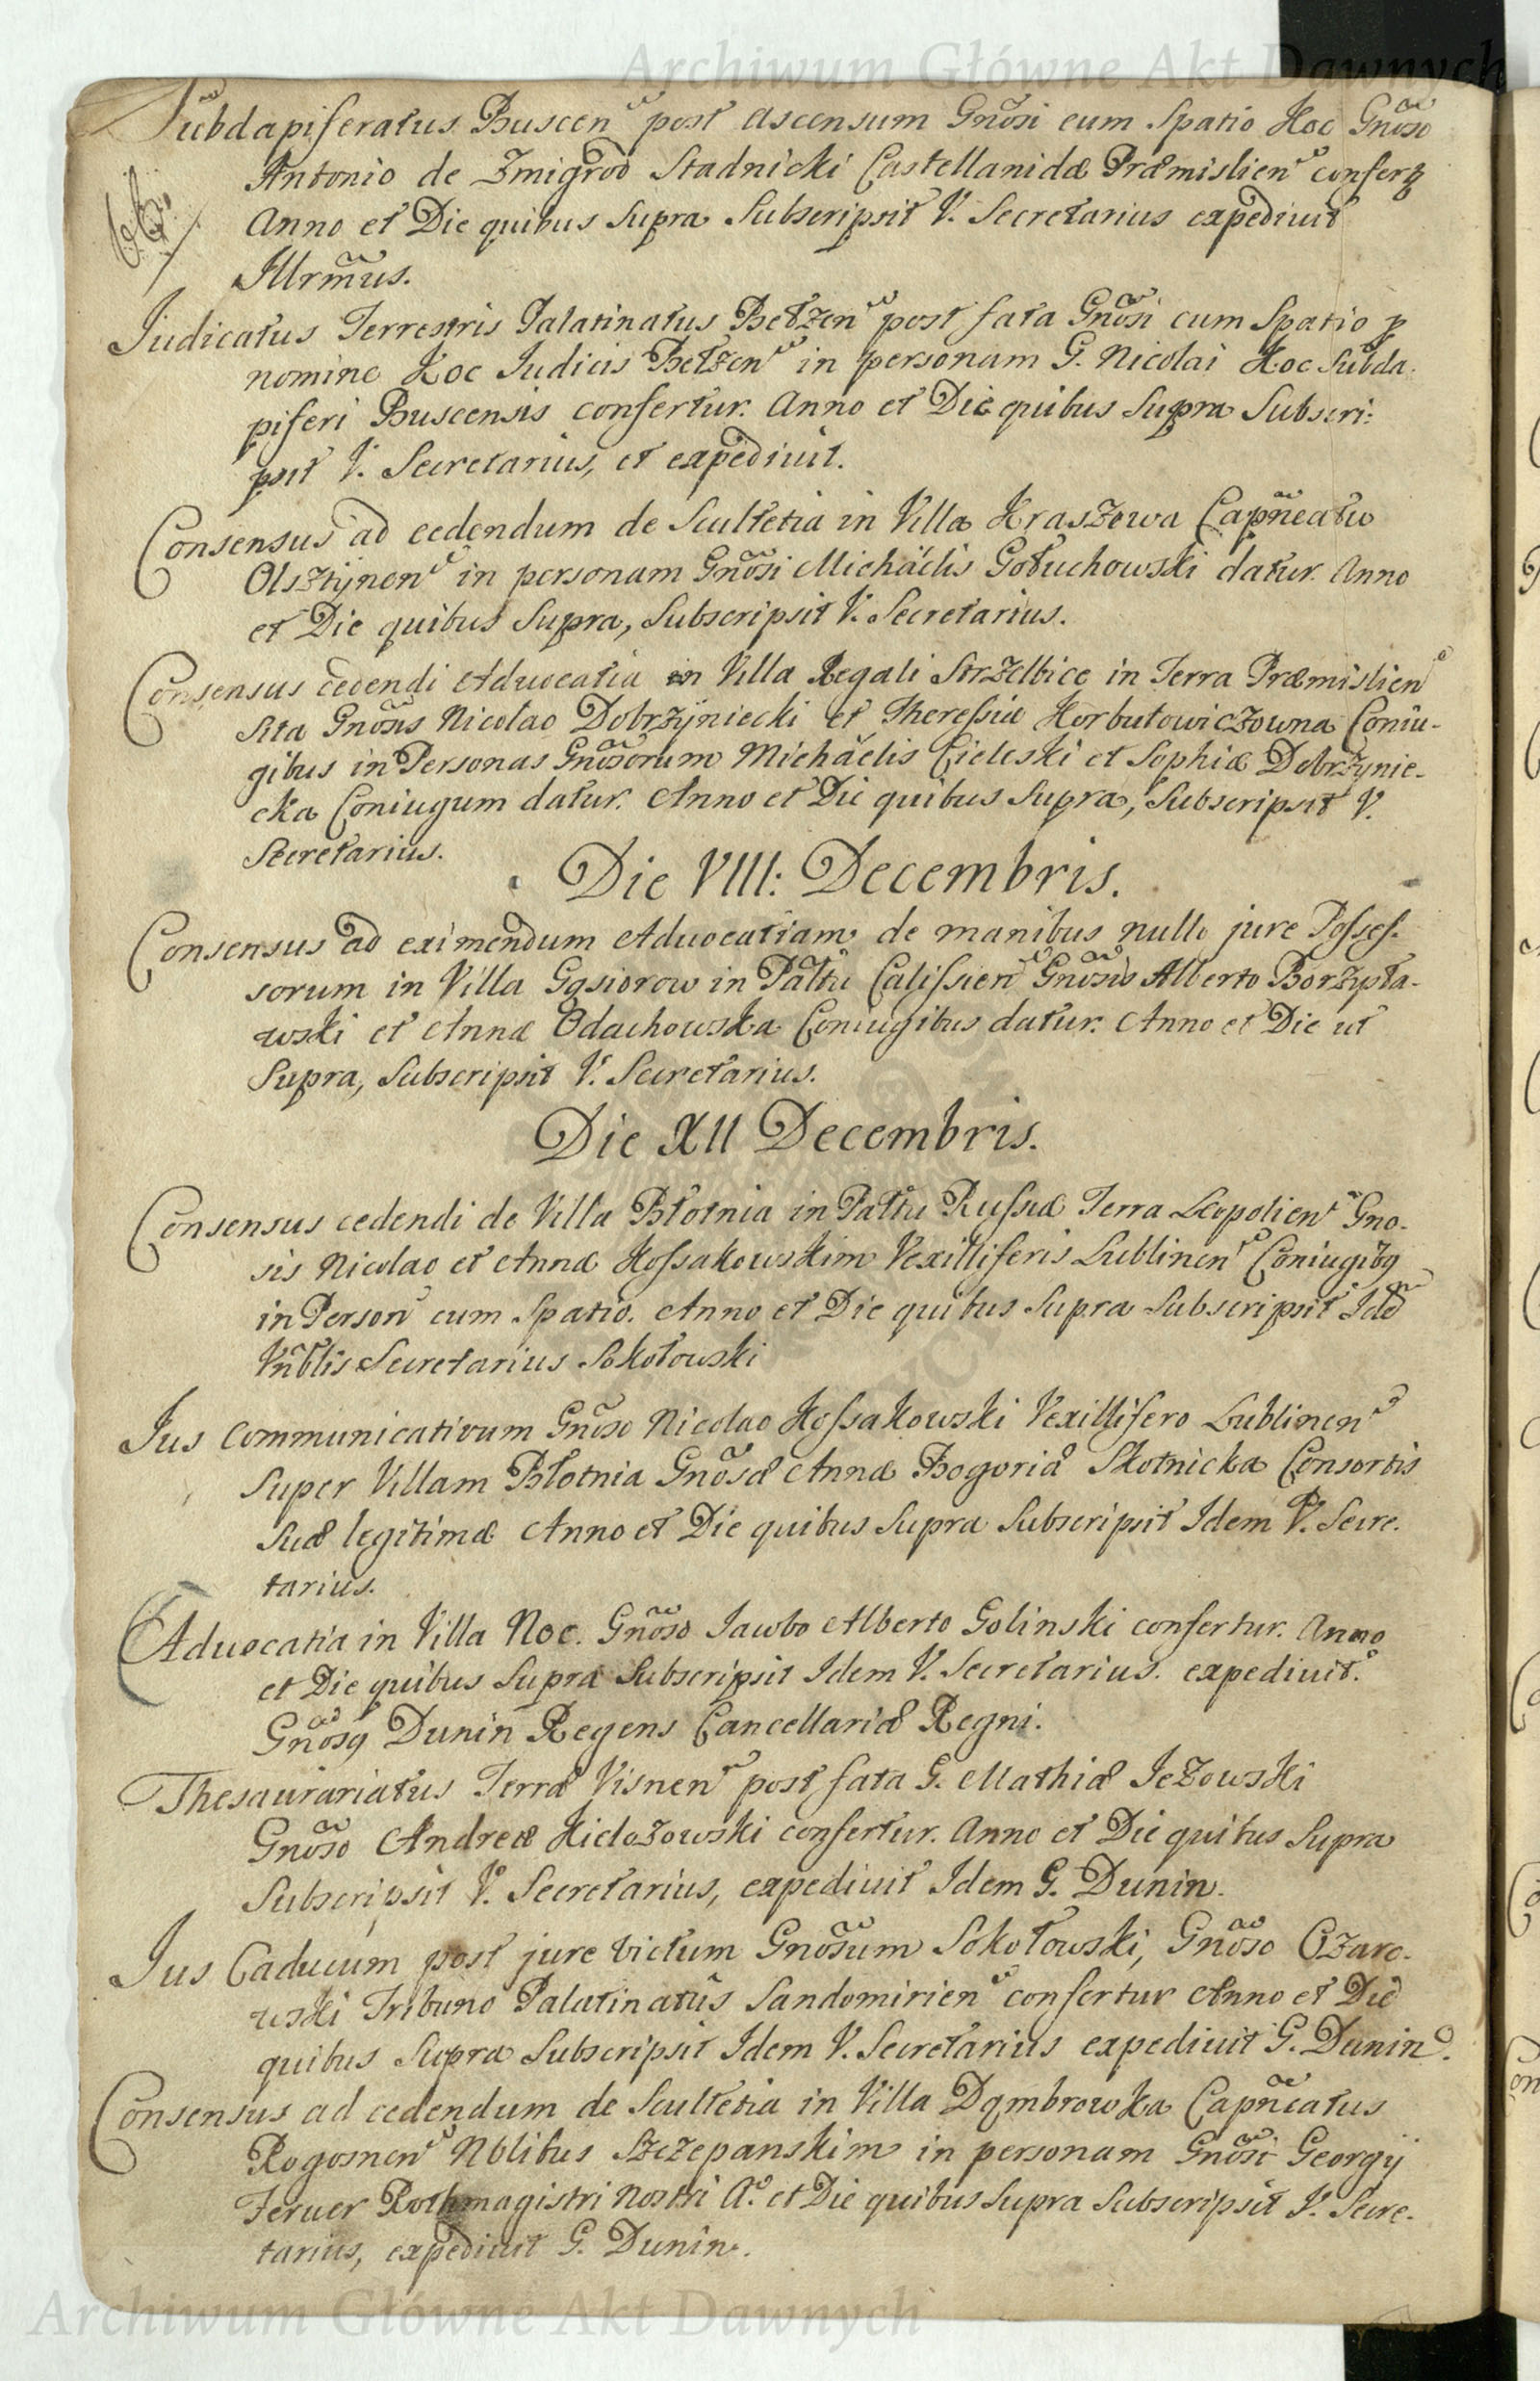 Archiwum Główne Akt Dawnych
Subdapiferatus Buscen post ascensum Gnosi cum Spatio Hoc Gnoso
Antonio de Zmigrod Stadnicki Castellanidæ Præmislien confertz
Anno et Die quibus Supra Subscripsit V. Secretarius expediuit
Illrmus.
Judicatus Terrestris Palatinatus Bełzen post fata Gnosi cum Spatio p
nomine Hoc Judicis Bełzen in personam G. Nicolai Hoc Subda-
piferi Buscensis confertur. Anno et Die quibus Supra Subscri:
psit V. Secretarius, et expediuit.
Consensus ad cedendum de Scultetia in Villa Kraszewa Capneatu
Olsztÿnen in personam Gnosi Michaëlis Gołuchowski datur. Anno
et Die quibus Supra, Subscripsit V. Secretarius.
Consensus cedendi Aduocatia in Villa Regali Strzelbice in Terra Præmislien
sita Gnosis Nicolao Dobrzÿniecki et Theressiæ Korbutowiczowna Coniu-
gibus in Personas Gnosorum Michaëlis Cieleski et Sophiæ Dobrzÿnie-
cka Coniugum datur. Anno et Die quibus Supra, Subscripsit V.
Secretarius.
Die VIII: Decembris.
Consensus ad eximendum Aduocatiam de manibus nullo jure Posses-
sorum in Villa Gąsiorow in Pałtu Calissien Gnosis Alberto Borzysła-
wski et Annæ Odachowska Coniugibus datur. Anno et Die ut
Supra, Subscripsit V. Secretarius.
Die XII Decembris.
Consensus cedendi de Villa Błotnia in Pałtu Russiæ Terra Leopolien Gno-
sis Nicolao et Annæ Kossakowskim Vexilliferis Lublinen Coniugibq
in Person cum Spatio. Anno et Die quibus Supra Subscripsit Ide
Vnblis Secretarius Sokołowski
Jus Communicativum Gnoso Nicolao Kossakowski Vexillifero Lublinen
Super Villam Błotnia Gnosæ Annæ Bogoria Skotnicka Consortis
Suæ legitimæ Anno et Die quibus Supra Subscripsit Idem V. Secre-
tarius.
Aduocatia in Villa Noc. Gnoso Jacobo Alberto Golinski confertur. Anno
et Die quibus Supra Subscripsit Idem V. Secretarius. expediuit.
Gnosq Dunin Regens Cancellariæ Regni.
Thesaurariatus Terræ Visnen post fata G. Mathiæ Jeżowski
Gnoso Andreæ Kielczowski confertur. Anno et Die quibus Supra
Subscripsit V. Secretarius, expediuit Idem G. Dunin.
Jus Caducum post jure victum Gnosum Sokołowski, Gnoso Ożaro-
wski Tribuno Palatinatus Sandomirien confertur Anno et Die
quibus Supra Subscripsit Idem V. Secretarius expediuit G. Dunin.
Consensus ad cedendum de Scultetia in Villa Dąmbrowka Capneatus
Rogosnen Nblibus Szczepanskim in personam Gnosi Georgij
Feruer Rothmagistri Nostri A. et Die quibus Supra Subscripsit V. Secre-
tarius, expediuit G. Dunin.
Archiwum Główne Akt Dawnych